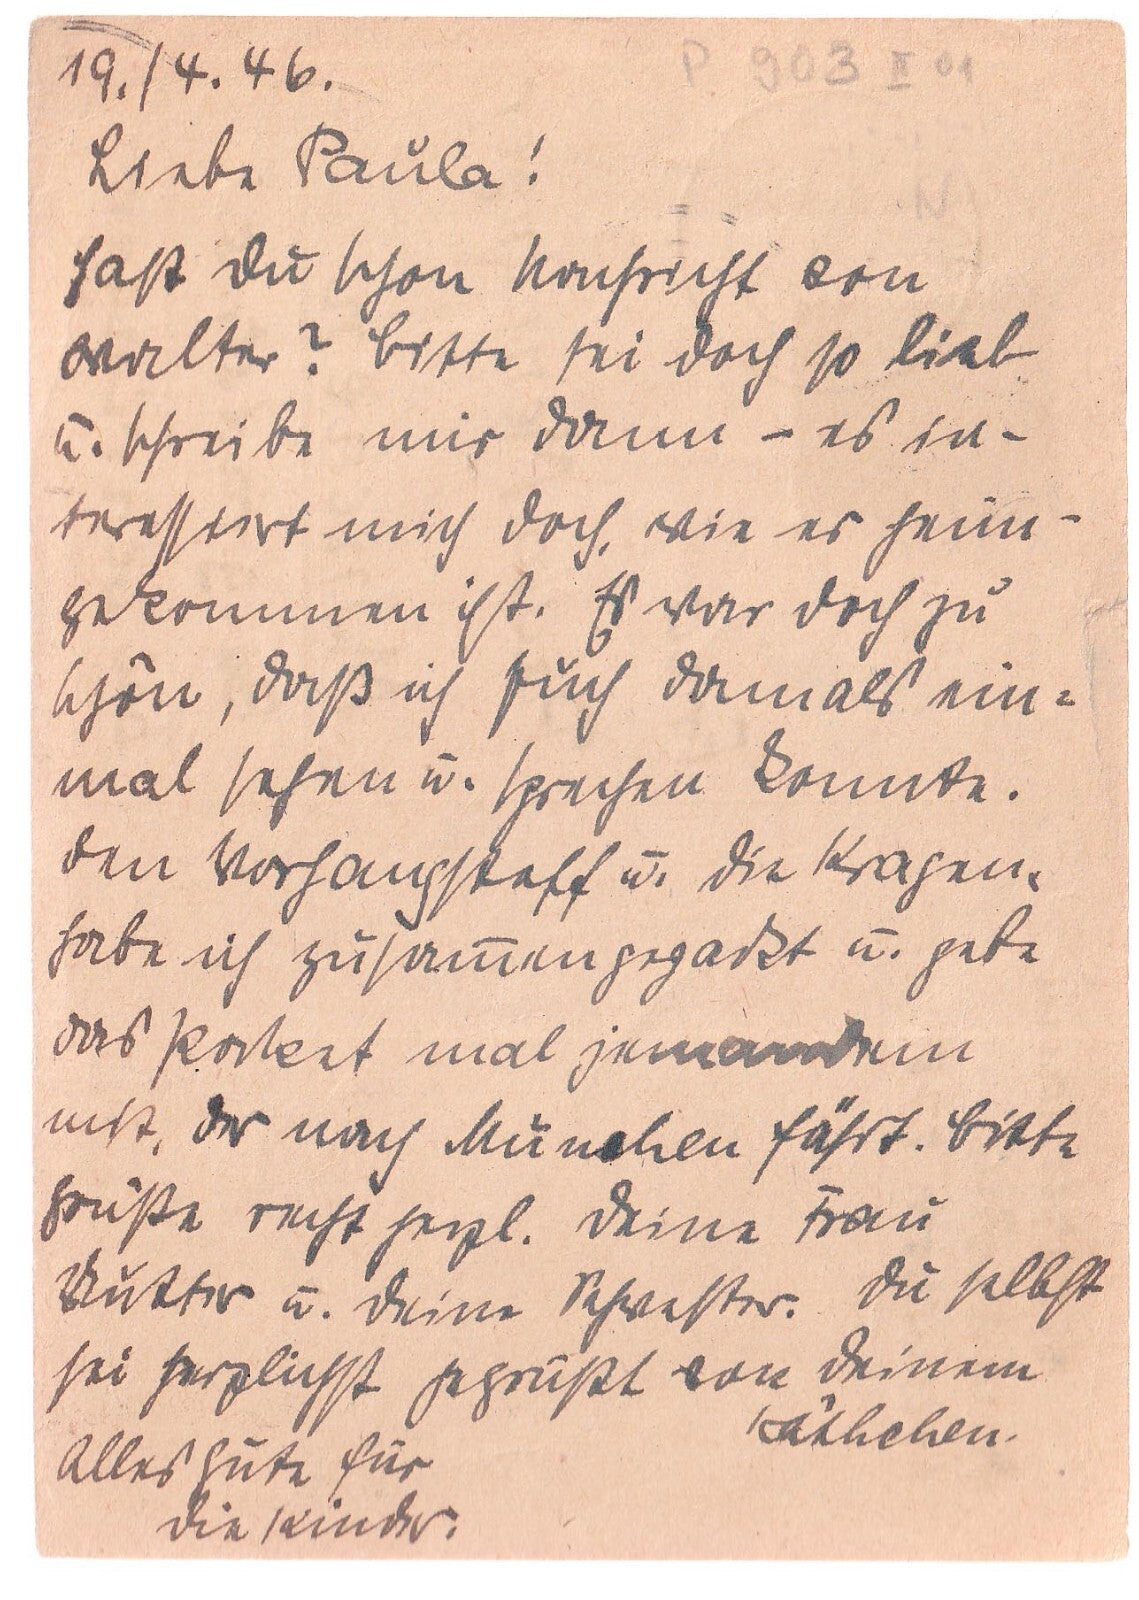 19./4.46.
P. 903 II 01
Liebe Paula!
Hast Du schon Nachricht von
Walter? Bitte sei doch so lieb
u. schreibe mir dann – es in-
teressiert mich doch, wie er heim-
gekommen ist. Es war doch zu
schön, daß ich Euch damals ein-
mal sehen u. sprechen konnte.
Den Vorhangstoff u. die Kragen
habe ich zusam̅engepackt u. gebe
das Packet mal jemandem
mit, der nach München fährt. Bitte
Grüße recht herzl. Deine Frau
Mutter u. Deine Schwester. Du selbst
sei herzlichst gegrüßt von Deinem
Käthchen.
Alles Gute für
die Kinder.